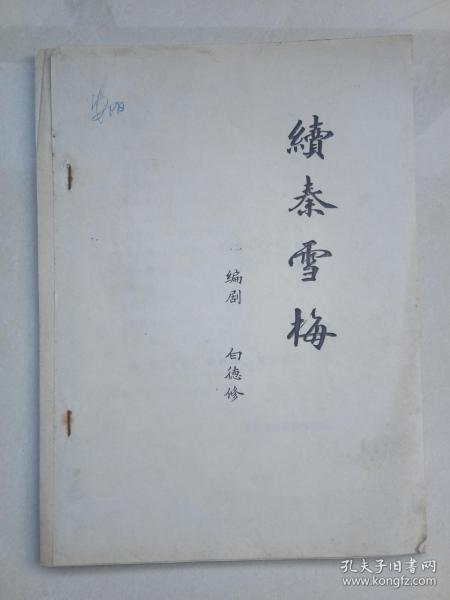 續秦雪梅
编剧 白德修
孔夫子旧书网
www.kongfz.com